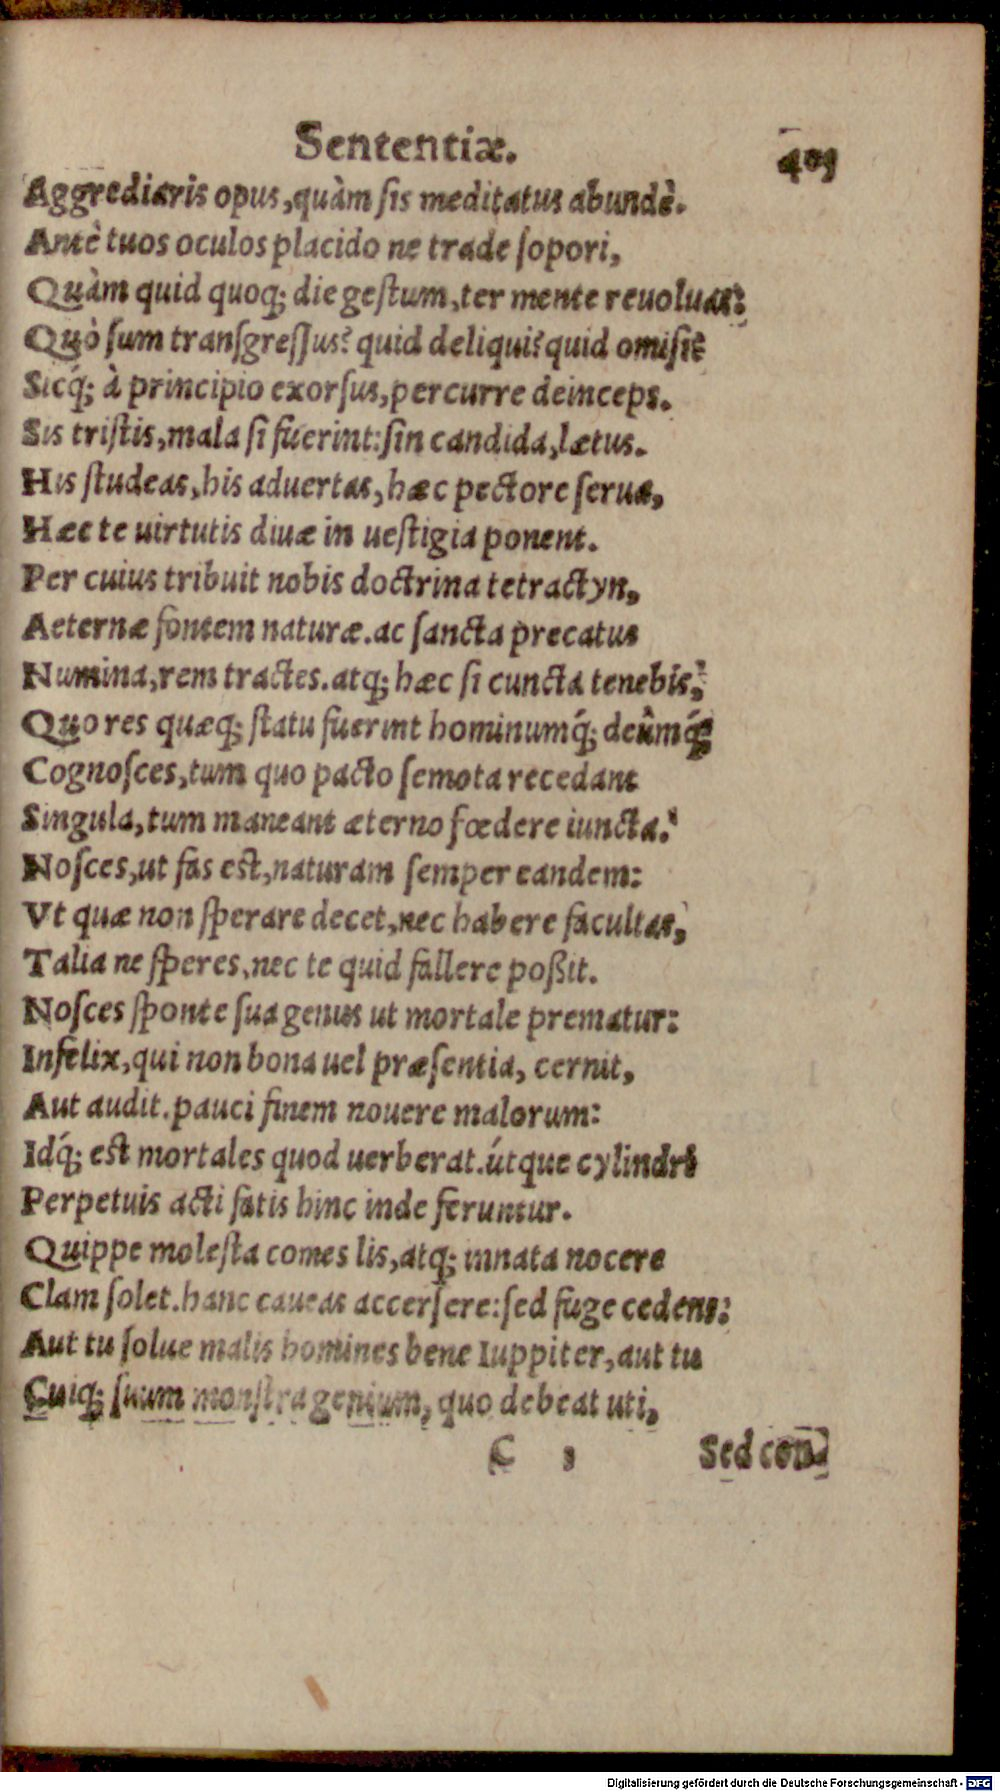 Sententiæ. 401
Aggrediaris opus, quàm sis meditatus abundè.
Antè tuos oculos placido ne trade sopori,
Quàm quid quoq; die gestum, ter mente reuoluas:
Quò sum transgressus? quid deliqui? quid omisi?
Sicq́; à principio exorsus, percurre deinceps.
Sis tristis, mala si fuerint: sin candida, lætus.
His studeas, his aduertas, hæc pectore serua,
Hæc te uirtutis diuæ in uestigia ponent.
Per cuius tribuit nobis doctrina tetractyn,
Aeternæ fontem naturæ. ac sancta precatus
Numina, rem tractes. atq; hæc si cuncta tenebis,
Quo res quæq; statu fuerint hominumq́; deûmq́;
Cognosces, tum quo pacto semota recedant
Singula, tum maneant æterno fœdere iuncta.
Nosces, ut fas est, naturam semper eandem:
Vt quæ non sperare decet, nec habere facultas,
Talia ne speres, nec te quid fallere poßit.
Nosces sponte sua genus ut mortale prematur:
Infelix, qui non bona uel præsentia, cernit,
Aut audit. pauci finem nouere malorum:
Idq́; est mortales quod uerberat. útque cylindri
Perpetuis acti fatis hinc inde feruntur.
Quippe molesta comes lis, atq; innata nocere
Clam solet. hanc caueas accersere: sed fuge cedens:
Aut tu solue malis homines bene Iuppiter, aut tu
Cuiq; suum monstra genium, quo debeat uti,
C Sed con-
Digitalisierung gefördert durch die Deutsche Forschungsgemeinschaft - DFG